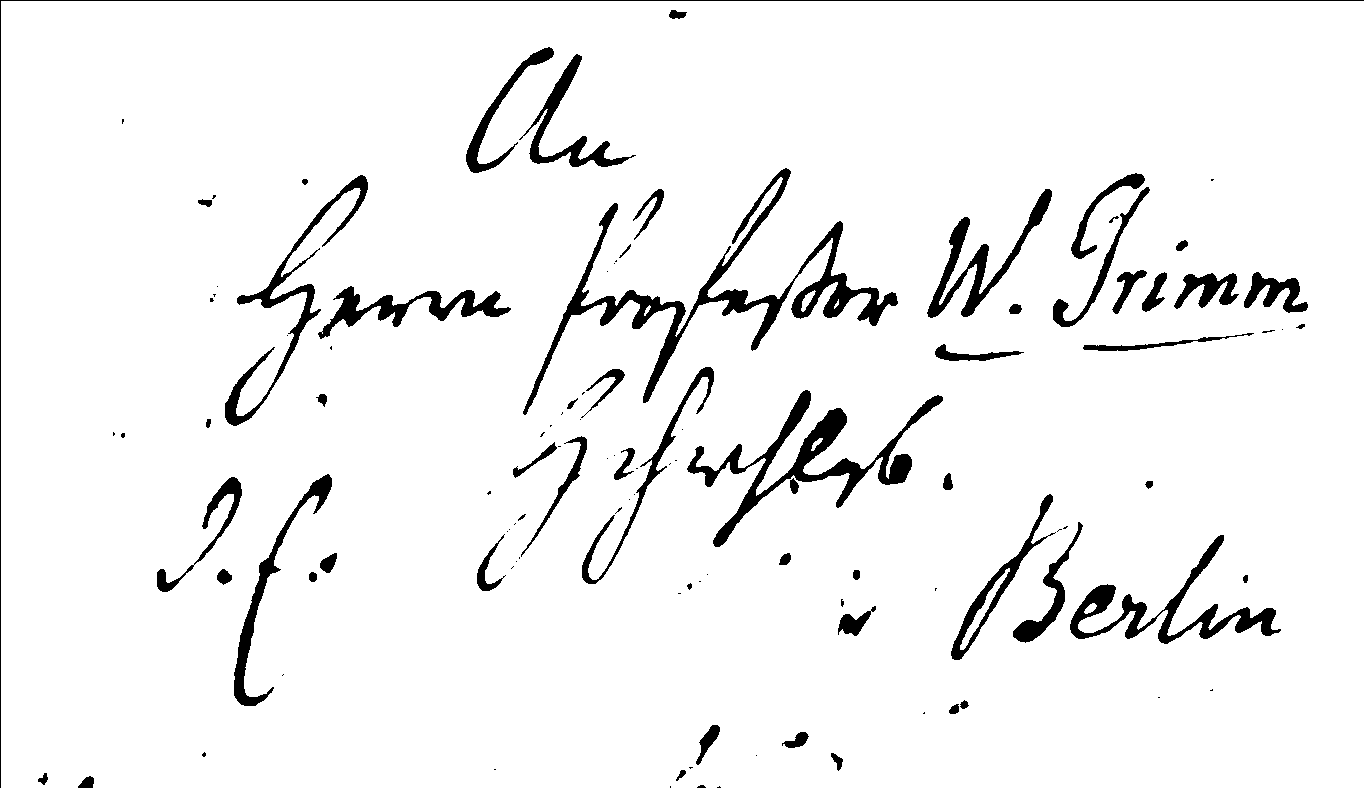 An
Herrn Professor W. Grimm
Hchwohlgb.
d. f.
in Berlin